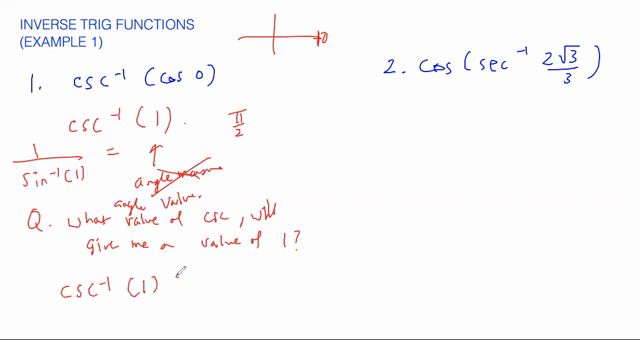 INVERSE TRIG FUNCTIONS
(EXAMPLE 1)
1. csc⁻¹ (cos 0)
csc⁻¹ (1). π/2
1/sin⁻¹(1) = ↑
angle measure
angle value.
Q. What value of csc, will
give me a value of 1?
csc⁻¹ (1)
2. cos (sec⁻¹ 2√3/3)